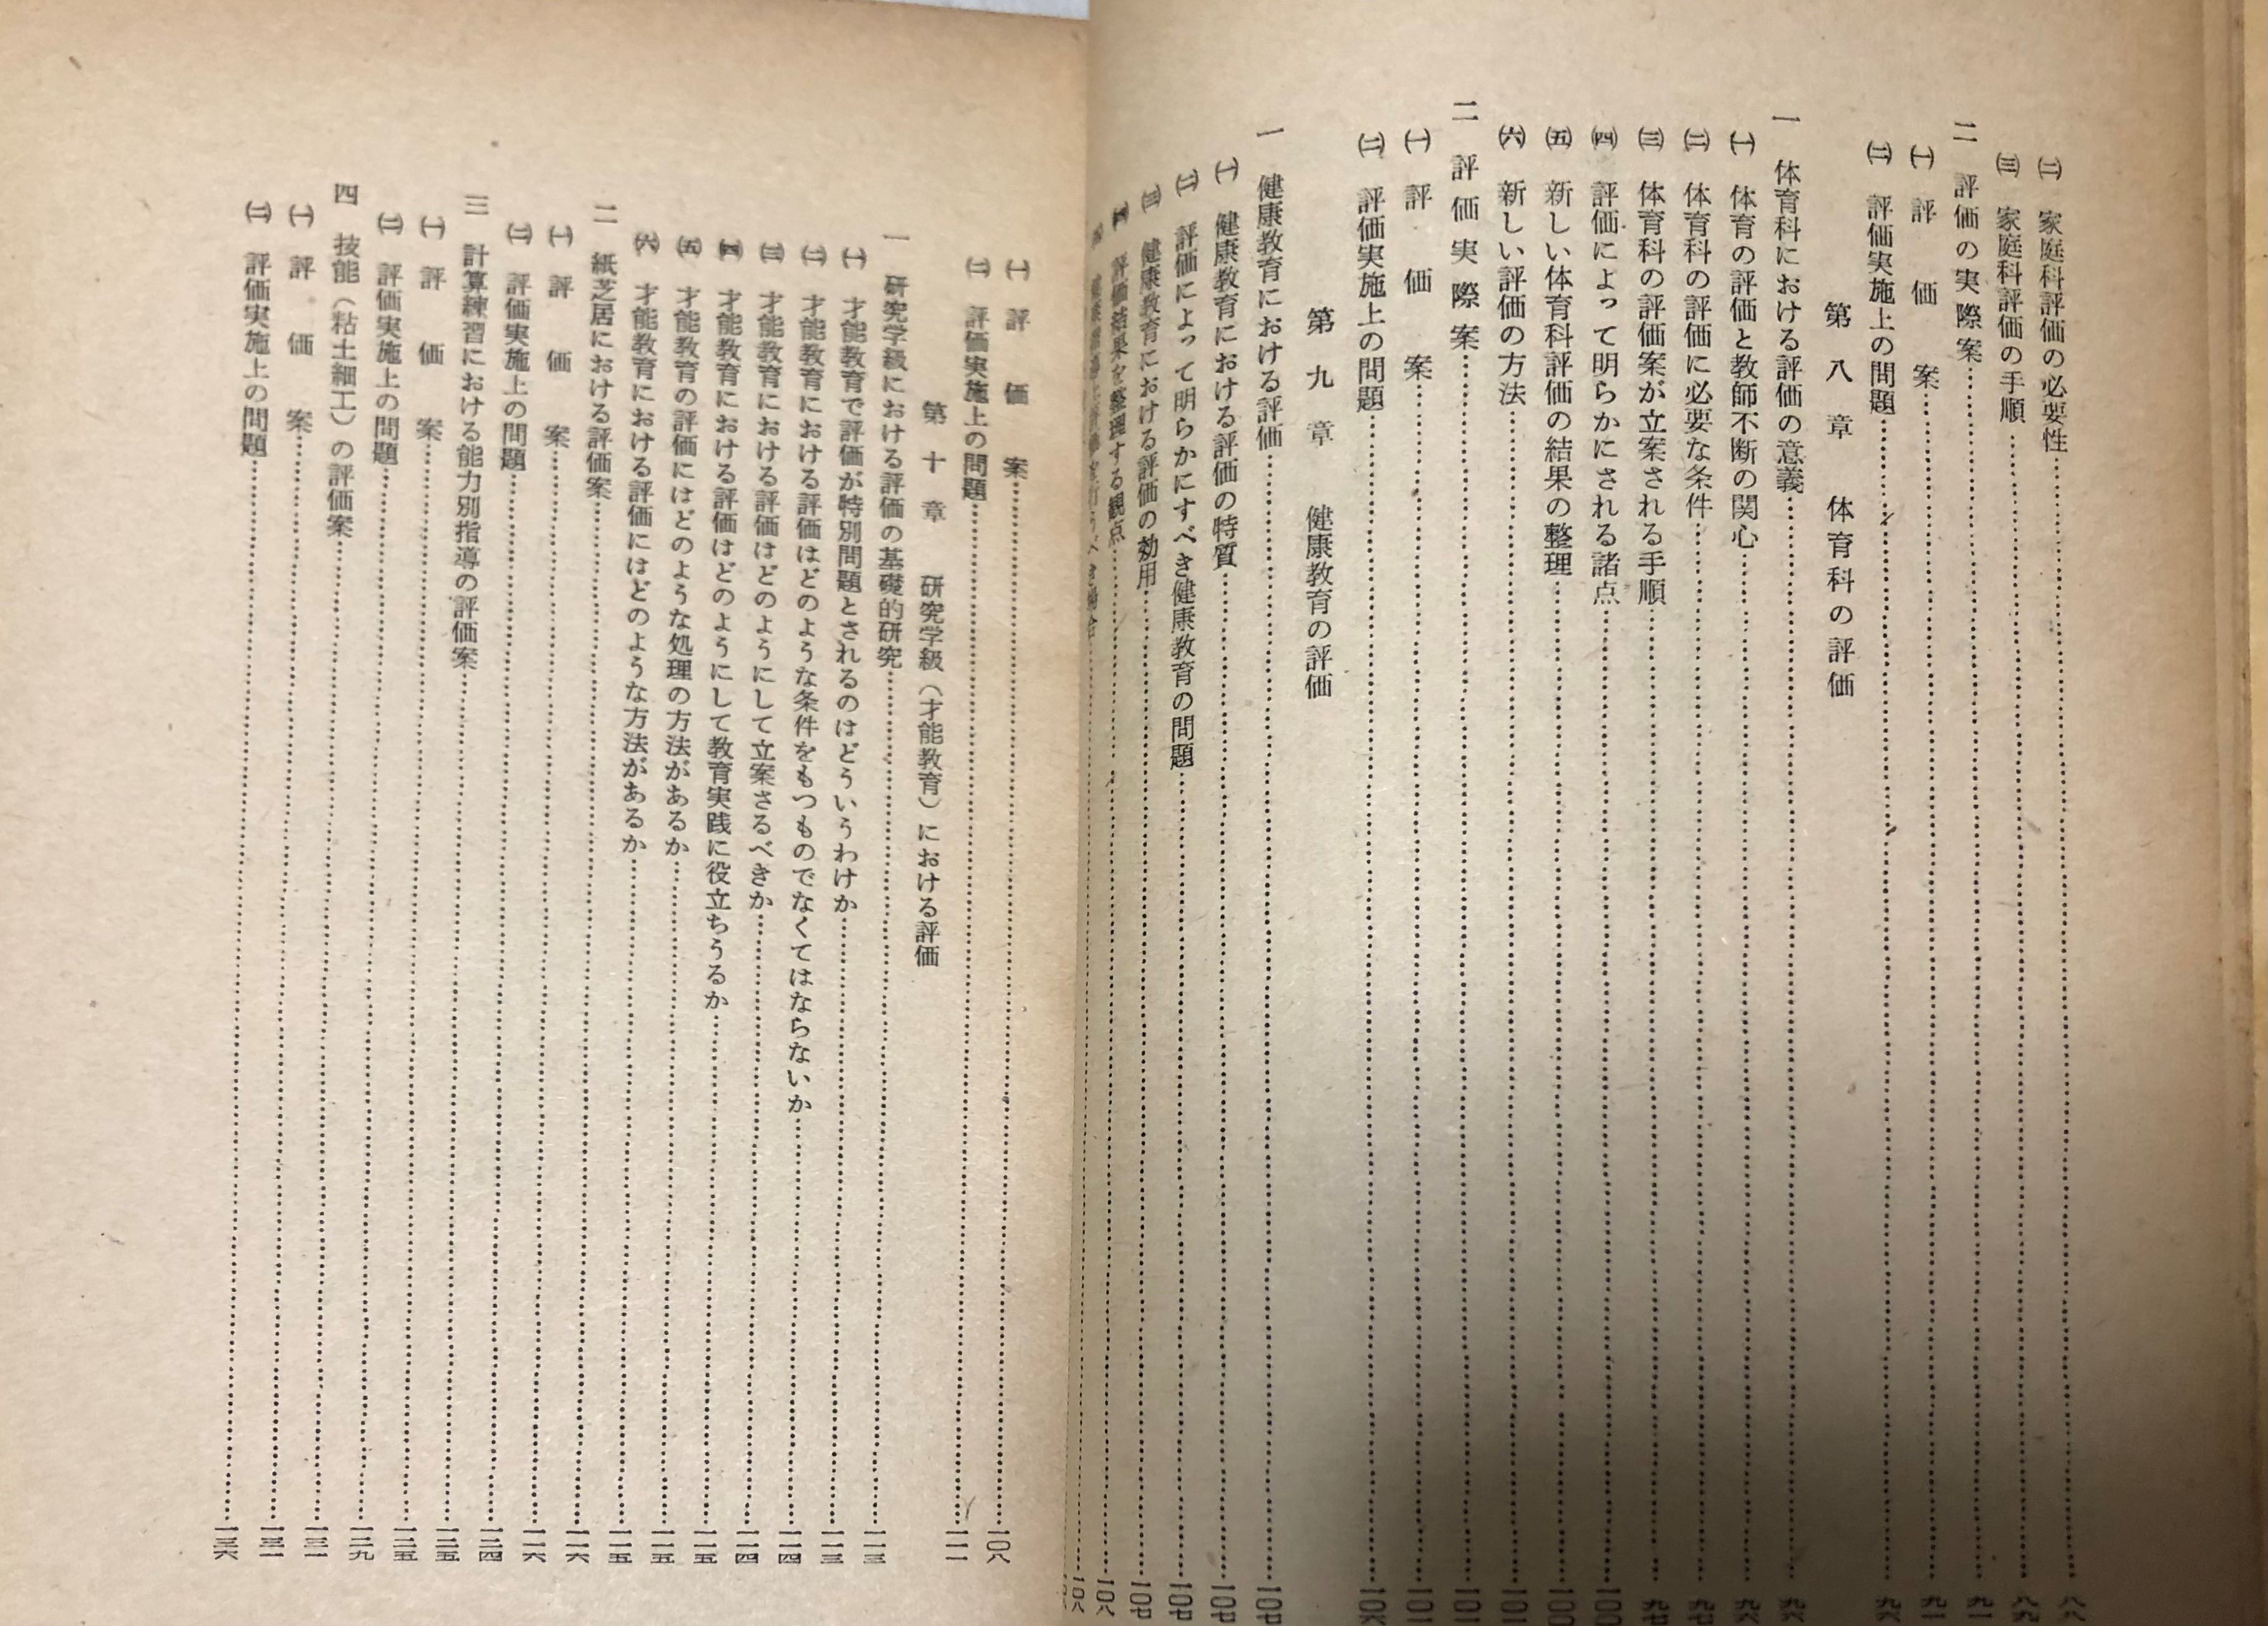 ㈡ 家庭科評価の必要性……八八
㈢ 家庭科評価の手順……八九
二 評価の実際案……九一
㈠ 評価案……九一
㈡ 評価実施上の問題……九六
第八章 体育科の評価
一 体育科における評価の意義……九六
㈠ 体育の評価と教師不断の関心……九六
㈡ 体育科の評価に必要な条件……九七
㈢ 体育科の評価案が立案される手順……九七
㈣ 評価によって明らかにされる諸点……一〇〇
㈤ 新しい体育科評価の結果の整理……一〇〇
㈥ 新しい評価の方法……一〇一
二 評価実際案……一〇一
㈠ 評価案……一〇一
㈡ 評価実施上の問題……一〇六
第九章 健康教育の評価
一 健康教育における評価……一〇七
㈠ 健康教育における評価の特質……一〇七
㈡ 評価によって明らかにすべき健康教育の問題……一〇七
㈢ 健康教育における評価の効用……一〇七
㈣ 評価結果を整理する観点……一〇八
㈤……一〇八
㈠ 評価案……一〇八
㈡ 評価実施上の問題……一一一
第十章 研究学級（才能教育）における評価
一 研究学級における評価の基礎的研究……一一三
㈠ 才能教育で評価が特別問題とされるのはどういうわけか……一一三
㈡ 才能教育における評価はどのような条件をもつものでなくてはならないか……一一四
㈢ 才能教育における評価はどのようにして立案さるべきか……一一四
㈣ 才能教育における評価はどのようにして教育実践に役立ちうるか……一一五
㈤ 才能教育の評価にはどのような処理の方法があるか……一一五
㈥ 才能教育における評価にはどのような方法があるか……一一五
二 紙芝居における評価案……一一六
㈠ 評価案……一一六
㈡ 評価実施上の問題……一二四
三 計算練習における能力別指導の評価案……一二五
㈠ 評価案……一二五
㈡ 評価実施上の問題……一二九
四 技能（粘土細工）の評価案……一三一
㈠ 評価案……一三一
㈡ 評価実施上の問題……一三六